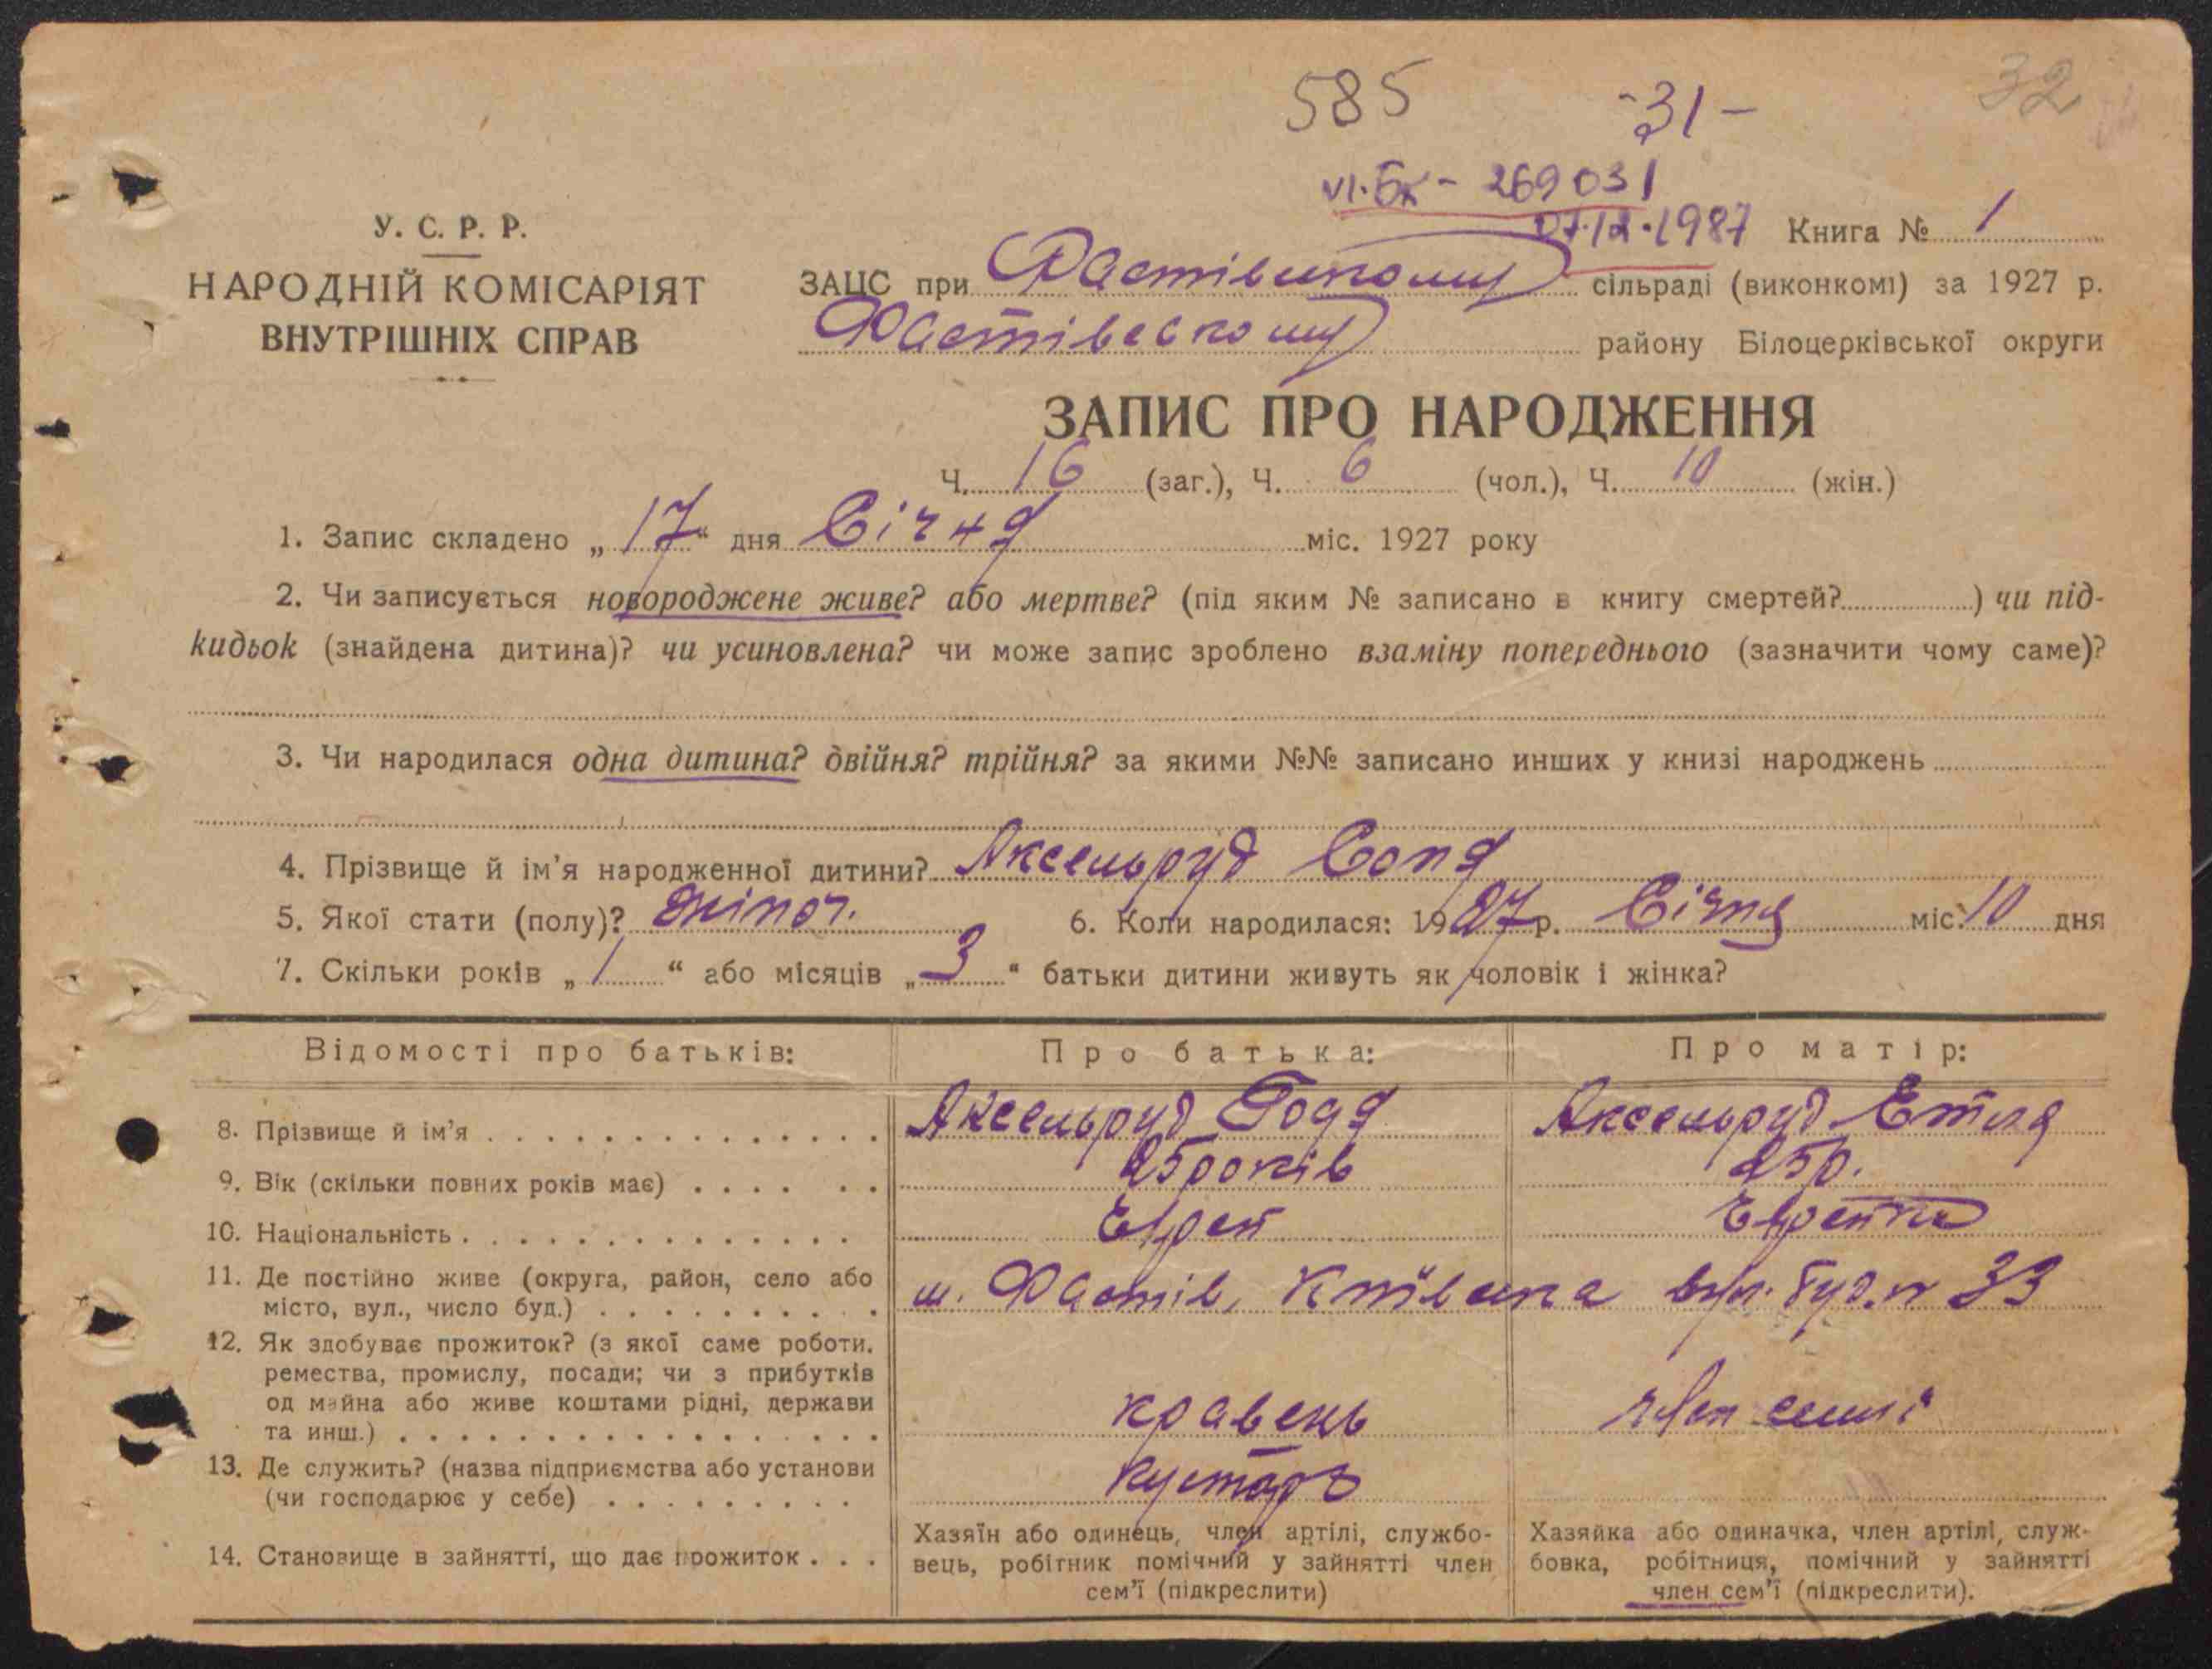 585 -31- 32
VI-БК - 269031
07.12.1987 Книга № 1
У. С. Р. Р.
НАРОДНІЙ КОМІСАРІЯТ
ВНУТРІШНІХ СПРАВ
ЗАЦС при Фастівському сільраді (виконкомі) за 1927 р.
Фастівському району Білоцерківської округи
ЗАПИС ПРО НАРОДЖЕННЯ
Ч. 16 (заг.), Ч. 6 (чол.), Ч. 10 (жін.)
1. Запис складено „ 17 “ дня Січня міс. 1927 року
2. Чи записується новороджене живе? або мертве? (під яким № записано в книгу смертей? ) чи під-
кидьок (знайдена дитина)? чи усиновлена? чи може запис зроблено взаміну попереднього (зазначити чому саме)?
3. Чи народилася одна дитина? двійня? трійня? за якими №№ записано инших у книзі народжень
4. Прізвище й ім'я народженної дитини? Аксельруд Соня
5. Якої стати (полу)? жіноч. 6. Коли народилася: 1927 р. Січня міс. 10 дня
7. Скільки років „ 1 “ або місяців „ 3 “ батьки дитини живуть як чоловік і жінка?
Відомості про батьків: Про батька: Про матір:
8. Прізвище й ім'я Аксельруд Аксельруд Етля
9. Вік (скільки повних років має) 25 років 25 р.
10. Національність Еврей Еврейка
11. Де постійно живе (округа, район, село або
місто, вул., число буд.) м. Фастів, Київська вул. буд. № 33
12. Як здобуває прожиток? (з якої саме роботи,
ремества, промислу, посади; чи з прибутків
од майна або живе коштами рідні, держави
та инш.) кравець член семьї
13. Де служить? (назва підприємства або установи
(чи господарює у себе) кустарь
14. Становище в зайнятті, що дає прожиток
Хазяїн або одинець, член артілі, службо-
вець, робітник помічний у зайнятті член
сем'ї (підкреслити)
Хазяйка або одиначка, член артілі, служ-
бовка, робітниця, помічний у зайнятті
член сем'ї (підкреслити).